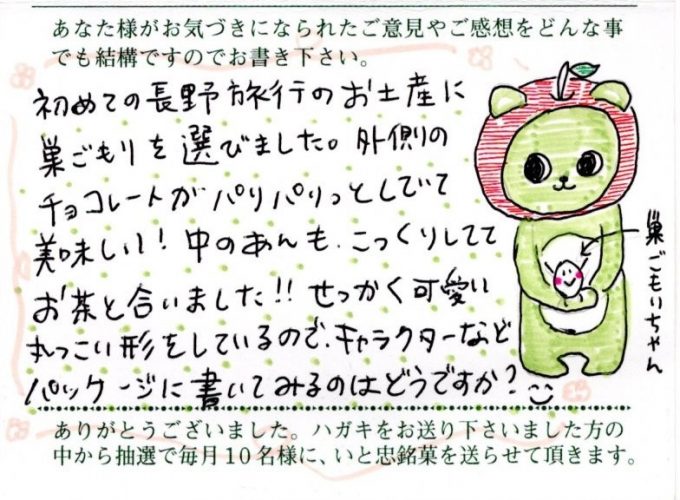 あなた様がお気づきになられたご意見やご感想をどんな事
でも結構ですのでお書き下さい。
初めての長野旅行のお土産に
巣ごもりを選びました。外側の
チョコレートがパリパリっとしていて
美味しい！中のあんも、こっくりしてて
お茶と合いました!!せっかく可愛い
丸っこい形をしているので、キャラクターなど
パッケージに書いてみるのはどうですか?
巣ごもりちゃん
ありがとうございました。ハガキをお送り下さいました方の
中から抽選で毎月10名様に、いと忠銘菓を送らせて頂きます。